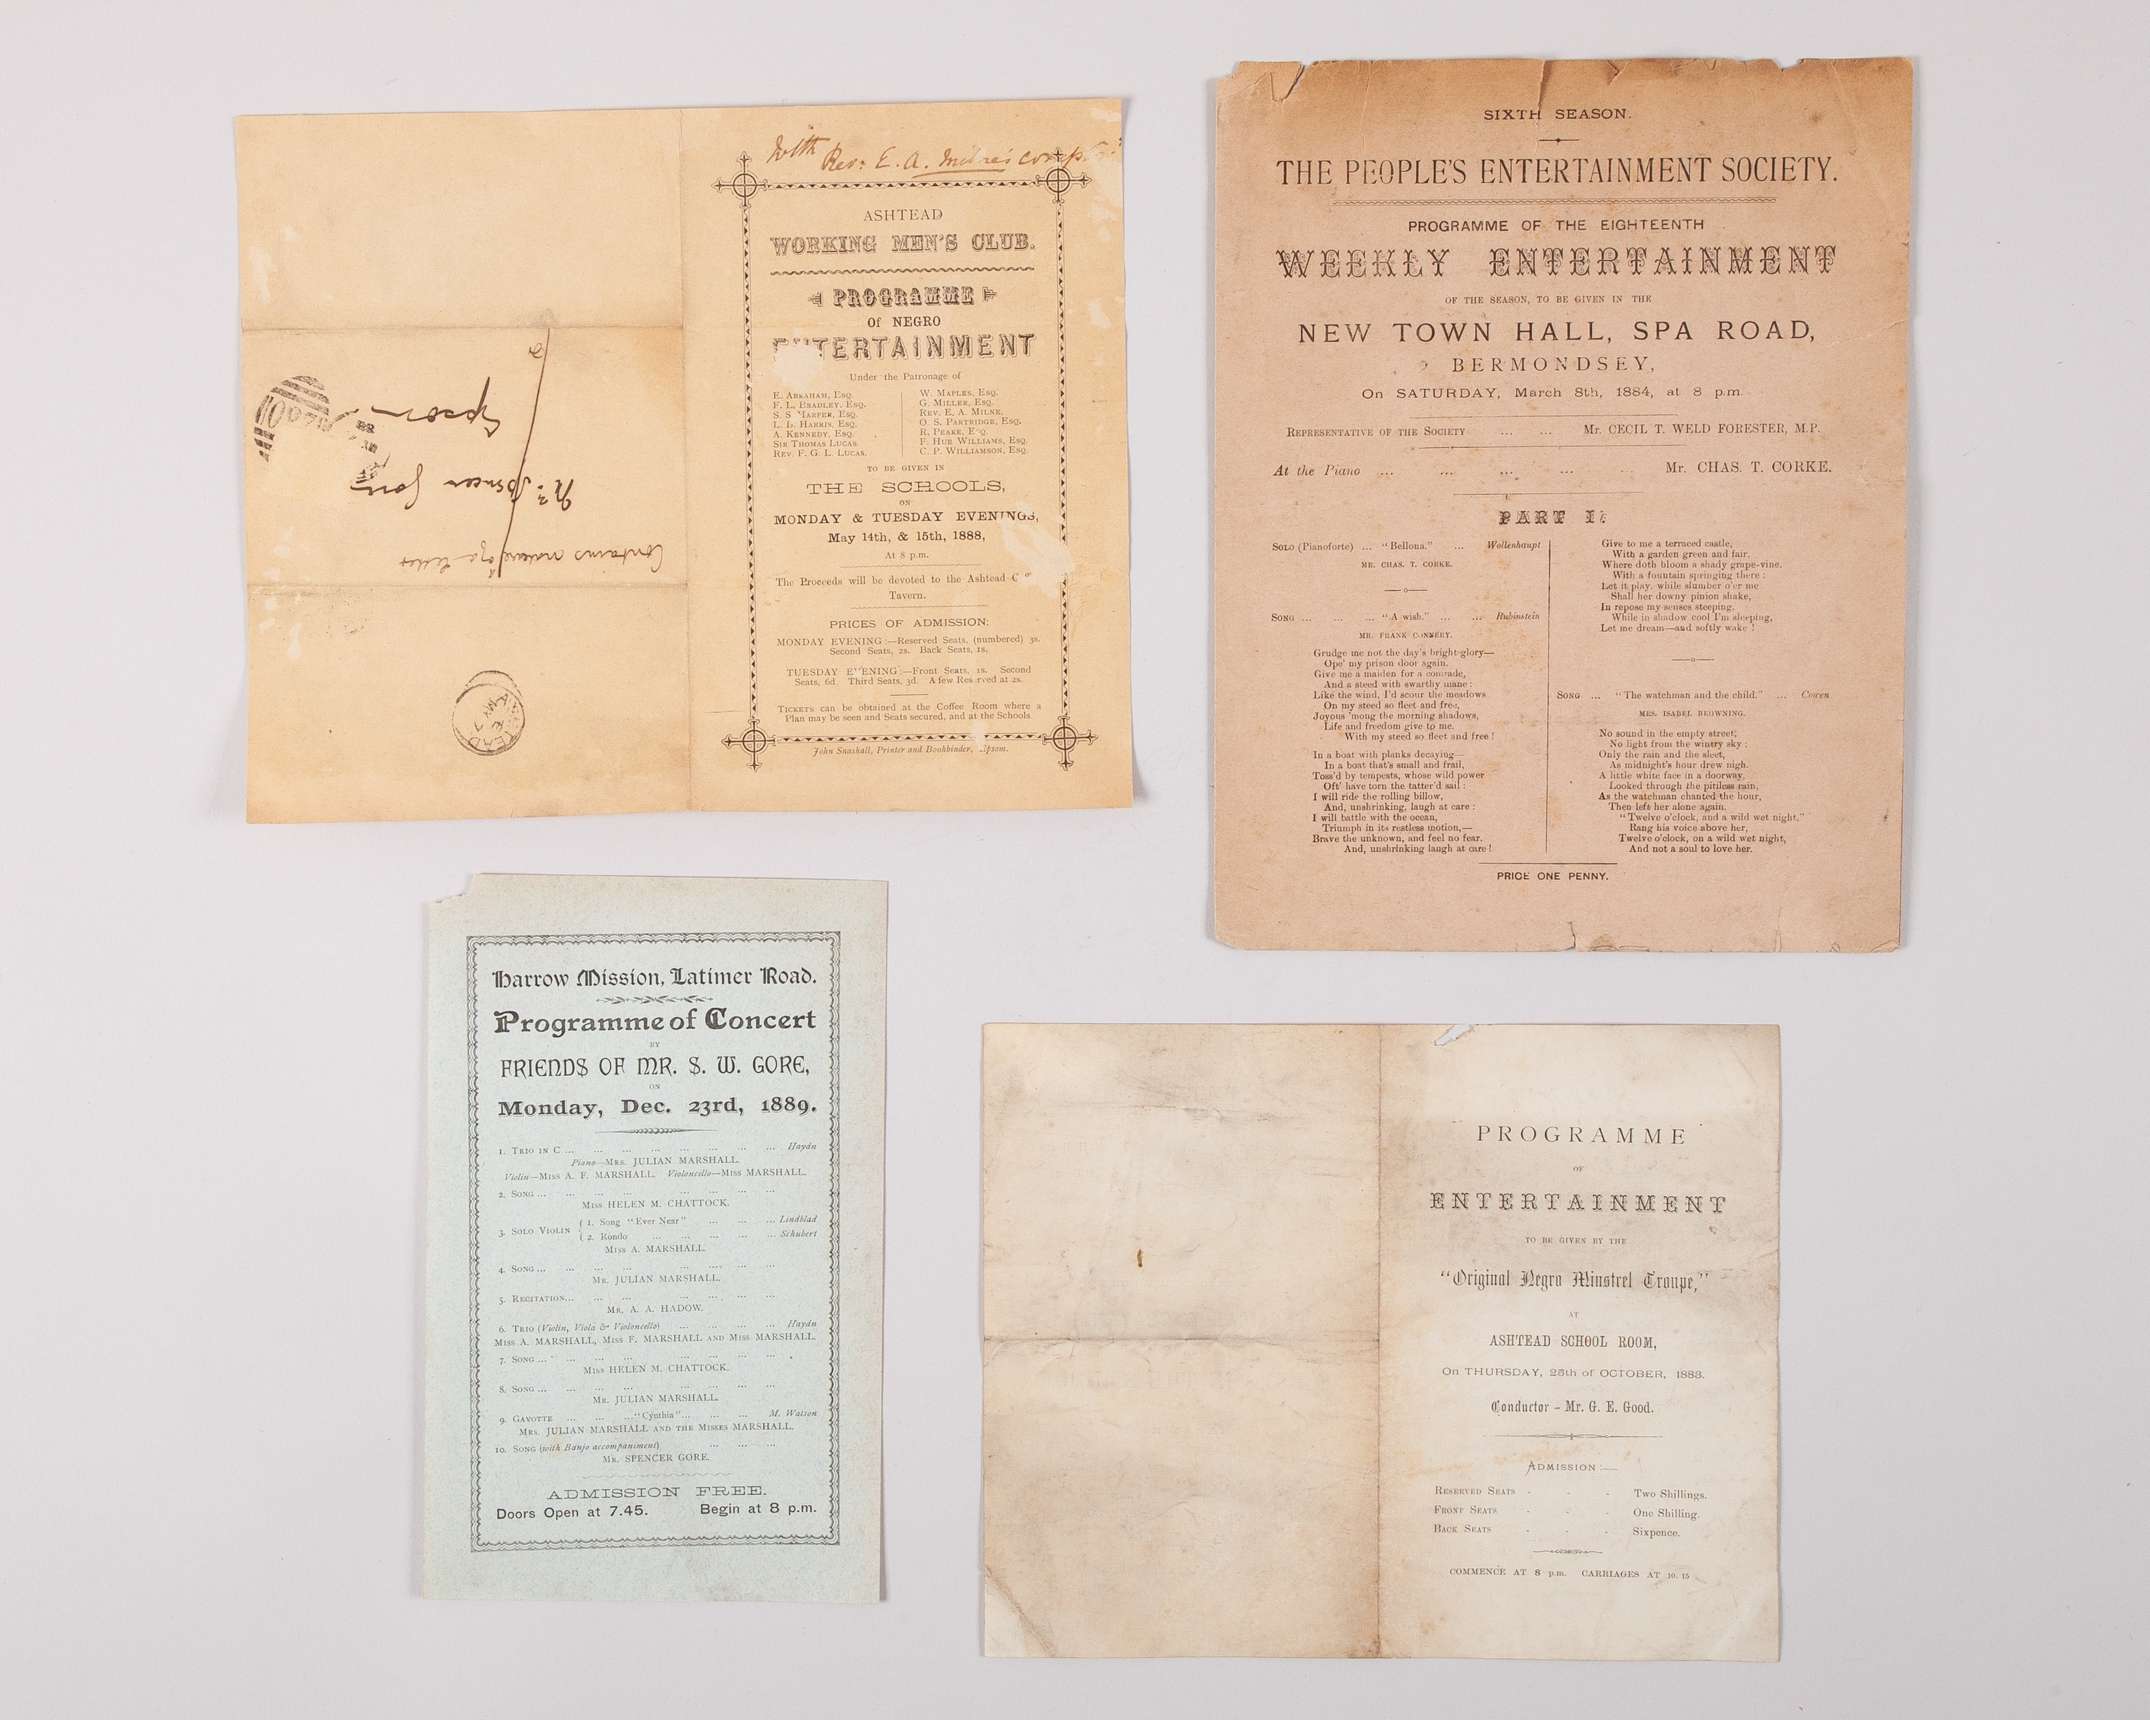 With Rev: E. A. Milne's
ASHTEAD
WORKING MEN'S CLUB.
PROGRAMME
Of NEGRO
ENTERTAINMENT
Under the Patronage of
E. ABRAHAM, ESQ.
F. L. BRADLEY, ESQ.
S. S HARPER, ESQ.
L. D. HARRIS, ESQ.
A. KENNEDY, ESQ.
SIR THOMAS LUCAS.
REV. F. G. L. LUCAS.
W. MAPLES, ESQ.
G. MILLER, ESQ.
REV. E. A. MILNE.
O. S. PARTRIDGE, ESQ.
R. PEAKE, ESQ.
F. HUB WILLIAMS, ESQ.
C. P. WILLIAMSON, ESQ.
TO BE GIVEN IN
THE SCHOOLS,
ON
MONDAY & TUESDAY EVENINGS,
May 14th, & 15th, 1888,
At 8 p.m.
The Proceeds will be devoted to the Ashtead
Tavern.
PRICES OF ADMISSION:
MONDAY EVENING:—Reserved Seats, (numbered) 3s.
Second Seats, 2s. Back Seats, 1s,
TUESDAY EVENING:—Front Seats, 1s. Second
Seats, 6d. Third Seats, 3d. A few Reserved at 2s.
TICKETS can be obtained at the Coffee Room where a
Plan may be seen and Seats secured, and at the Schools
John Snashall, Printer and Bookbinder, Epsom.
Contains nature of a letter
Mr. Spencer Gore
Epsom
SIXTH SEASON.
THE PEOPLE'S ENTERTAINMENT SOCIETY.
PROGRAMME OF THE EIGHTEENTH
WEEKLY ENTERTAINMENT
OF THE SEASON, TO BE GIVEN IN THE
NEW TOWN HALL, SPA ROAD,
BERMONDSEY,
On SATURDAY, March 8th, 1884, at 8 p.m.
REPRESENTATIVE OF THE SOCIETY ... ... Mr. CECIL T. WELD FORESTER, M.P.
At the Piano ... ... ... ... ... Mr. CHAS. T. CORKE.
PART I.
SOLO (Pianoforte) ... "Bellona." ... Wollenhaupt
MR. CHAS. T. CORKE.
SONG ... ... ... "A wish." ... ... Rubinstein
MR. FRANK CONNERY.
Grudge me not the day's bright glory—
Ope' my prison door again.
Give me a maiden for a comrade,
And a steed with swarthy mane:
Like the wind, I'd scour the meadows
On my steed so fleet and free,
Joyous 'mong the morning shadows,
Life and freedom give to me.
With my steed so fleet and free!
In a boat with planks decaying—
In a boat that's small and frail,
Toss'd by tempests, whose wild power
Oft' have torn the tatter'd sail:
I will ride the rolling billow,
And, unshrinking, laugh at care:
I will battle with the ocean,
Triumph in its restless motion,—
Brave the unknown, and feel no fear.
And, unshrinking laugh at care!
Give to me a terraced castle,
With a garden green and fair,
Where doth bloom a shady grape-vine.
With a fountain springing there:
Let it play, while slumber o'er me
Shall her downy pinion shake,
In repose my senses steeping,
While in shadow cool I'm sleeping,
Let me dream—and softly wake!
SONG ... "The watchman and the child." ... Cowen
MRS. ISABEL BROWNING.
No sound in the empty street;
No light from the wintry sky;
Only the rain and the sleet,
As midnight's hour drew nigh.
A little white face in a doorway,
Looked through the pitiless rain,
As the watchman chanted the hour,
Then left her alone again.
"Twelve o'clock, and a wild wet night,"
Rang his voice above her,
Twelve o'clock, on a wild wet night,
And not a soul to love her.
PRICE ONE PENNY.
Harrow Mission, Latimer Road.
Programme of Concert
BY
FRIENDS OF MR. S. W. GORE,
ON
Monday, Dec. 23rd, 1889.
1. TRIO IN C ... ... ... ... ... ... ... ... Haydn
Piano—MRS. JULIAN MARSHALL.
Violin—MISS A. F. MARSHALL. Violoncello—MISS MARSHALL.
2. SONG ... ... ... ... ... ... ... ...
MISS HELEN M. CHATTOCK.
3. SOLO VIOLIN { 1. Song "Ever Near" ... ... ... Lindblad
{ 2. Rondo ... ... ... ... ... Schubert
MISS A. MARSHALL.
4. SONG ... ... ... ... ... ... ... ...
MR. JULIAN MARSHALL.
5. RECITATION... ... ... ... ... ... ...
MR. A. A. HADOW.
6. TRIO (Violin, Viola & Violoncello) ... ... ... ... Haydn
MISS A. MARSHALL, MISS F. MARSHALL AND MISS MARSHALL.
7. SONG ... ... ... ... ... ... ... ...
MISS HELEN M. CHATTOCK.
8. SONG ... ... ... ... ... ... ... ...
MR. JULIAN MARSHALL.
9. GAVOTTE ... ... ..."Cynthia"... ... ... M. Watson
MRS. JULIAN MARSHALL AND THE MISSES MARSHALL.
10. SONG (with Banjo accompaniment) ... ... ...
MR. SPENCER GORE.
ADMISSION FREE.
Doors Open at 7.45. Begin at 8 p.m.
PROGRAMME
OF
ENTERTAINMENT
TO BE GIVEN BY THE
"Original Negro Minstrel Troupe,"
AT
ASHTEAD SCHOOL ROOM,
On THURSDAY, 25th of OCTOBER, 1883.
Conductor - Mr. G. E. Good.
ADMISSION:—
RESERVED SEATS - - - Two Shillings.
FRONT SEATS - - - One Shilling.
BACK SEATS - - - Sixpence.
COMMENCE AT 8 p.m. CARRIAGES AT 10.15